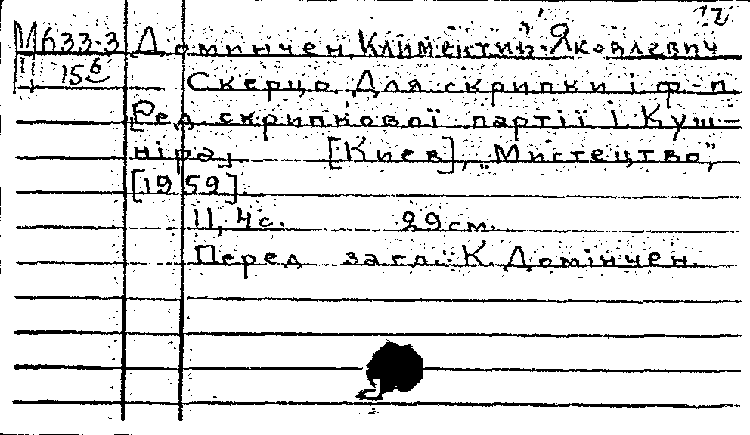 12
М633-3 Домінчен, Климентий Яковлевич
Ц 15б Скерцо. Для скрипки і ф-п.
[Ред. скрипкової партії І. Куш-
ніра]. [Киев], „Мистецтво",
[1959].
11, 4 с. 29 см.
Перед загл.: К. Домінчен.